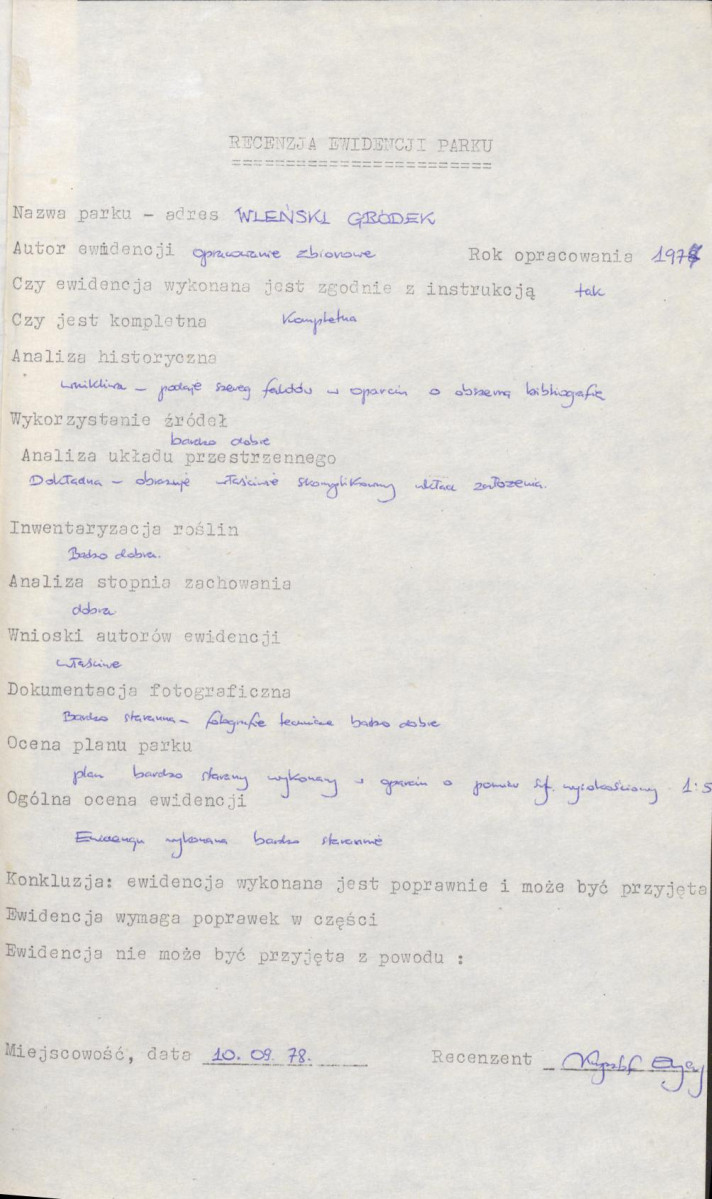 RECENZJA EWIDENCJI PARKU
========================
Nazwa parku - adres WLEŃSKI GRÓDEK
Autor ewidencji opracowanie zbiorowe Rok opracowania 197
Czy ewidencja wykonana jest zgodnie z instrukcją tak
Czy jest kompletna Kompletna
Analiza historyczna
wnikliwa - podaje szereg faktów w oparciu o obszerną bibliografię
Wykorzystanie źródeł
bardzo dobre
Analiza układu przestrzennego
Dokładna - obrazuje właściwie skomplikowany układ założenia.
Inwentaryzacja roślin
Bardzo dobra.
Analiza stopnia zachowania
dobra
Wnioski autorów ewidencji
właściwe
Dokumentacja fotograficzna
Bardzo staranna - fotografie techniczne bardzo dobre
Ocena planu parku
plan bardzo staranny wykonany w oparciu o pomiar syt. wysokościowy 1:5
Ogólna ocena ewidencji
Ewidencja wykonana bardzo starannie
Konkluzja: ewidencja wykonana jest poprawnie i może być przyjęta
Ewidencja wymaga poprawek w części
Ewidencja nie może być przyjęta z powodu :
Miejscowość, data 10. 09. 78. Recenzent